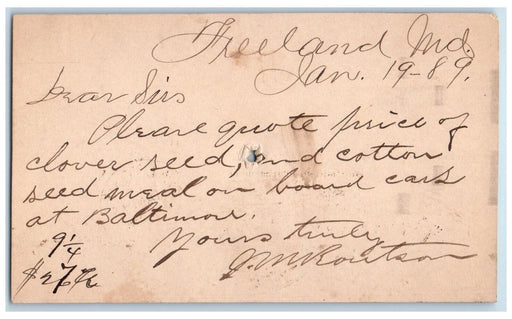 Freeland Md.
Jan. 19-89.
Dear Sirs
Please quote price of
clover seed, and cotton
seed meal on board cars
at Baltimore.
Yours truly
9 1/4